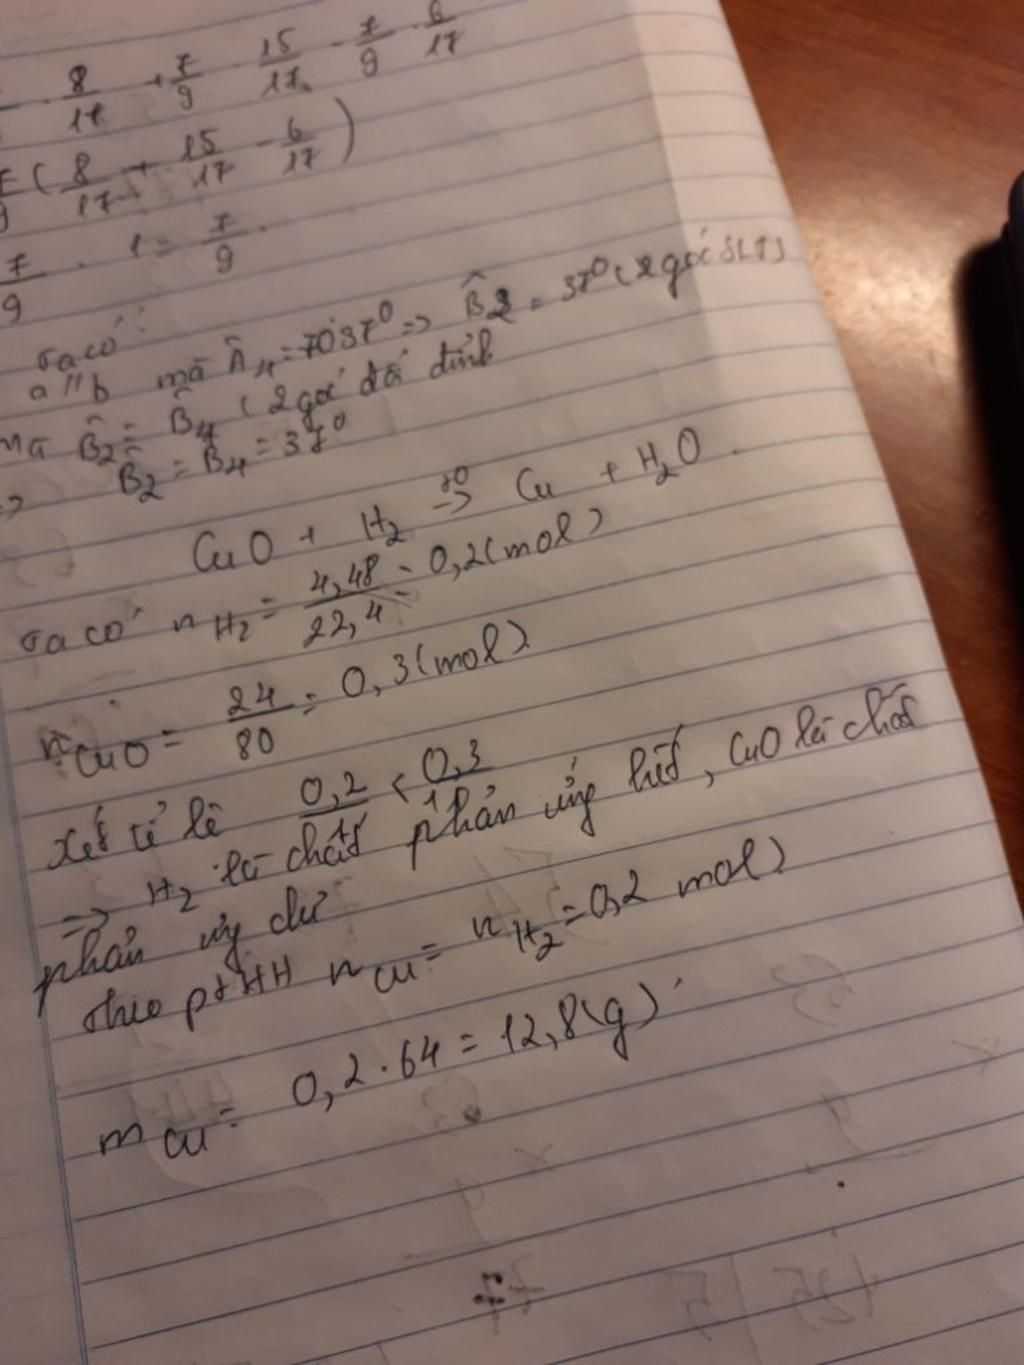 . 8/17 + 7/9 . 15/17 - 7/9 . 6/17
( 8/17 + 15/17 - 6/17 )
7/9 . 1 = 7/9 .
Ta có :
a // b mà Â4 = 37⁰ => B̂2 = 37⁰ ( 2 góc SLT)
mà B̂2 = B̂4 ( 2 góc đối đỉnh
=> B2 = B̂4 = 37⁰
CuO + H2 t⁰→ Cu + H2O .
Ta có n H2 = 4,48/22,4 = 0,2 (mol)
n CuO = 24/80 = 0,3 (mol)
xét tỉ lệ 0,2/1 < 0,3/1
=> H2 là chất phản ứng hết, CuO là chất
phản ứng dư
theo ptHH n Cu = n H2 = 0,2 mol)
m Cu = 0,2 . 64 = 12,8 (g)